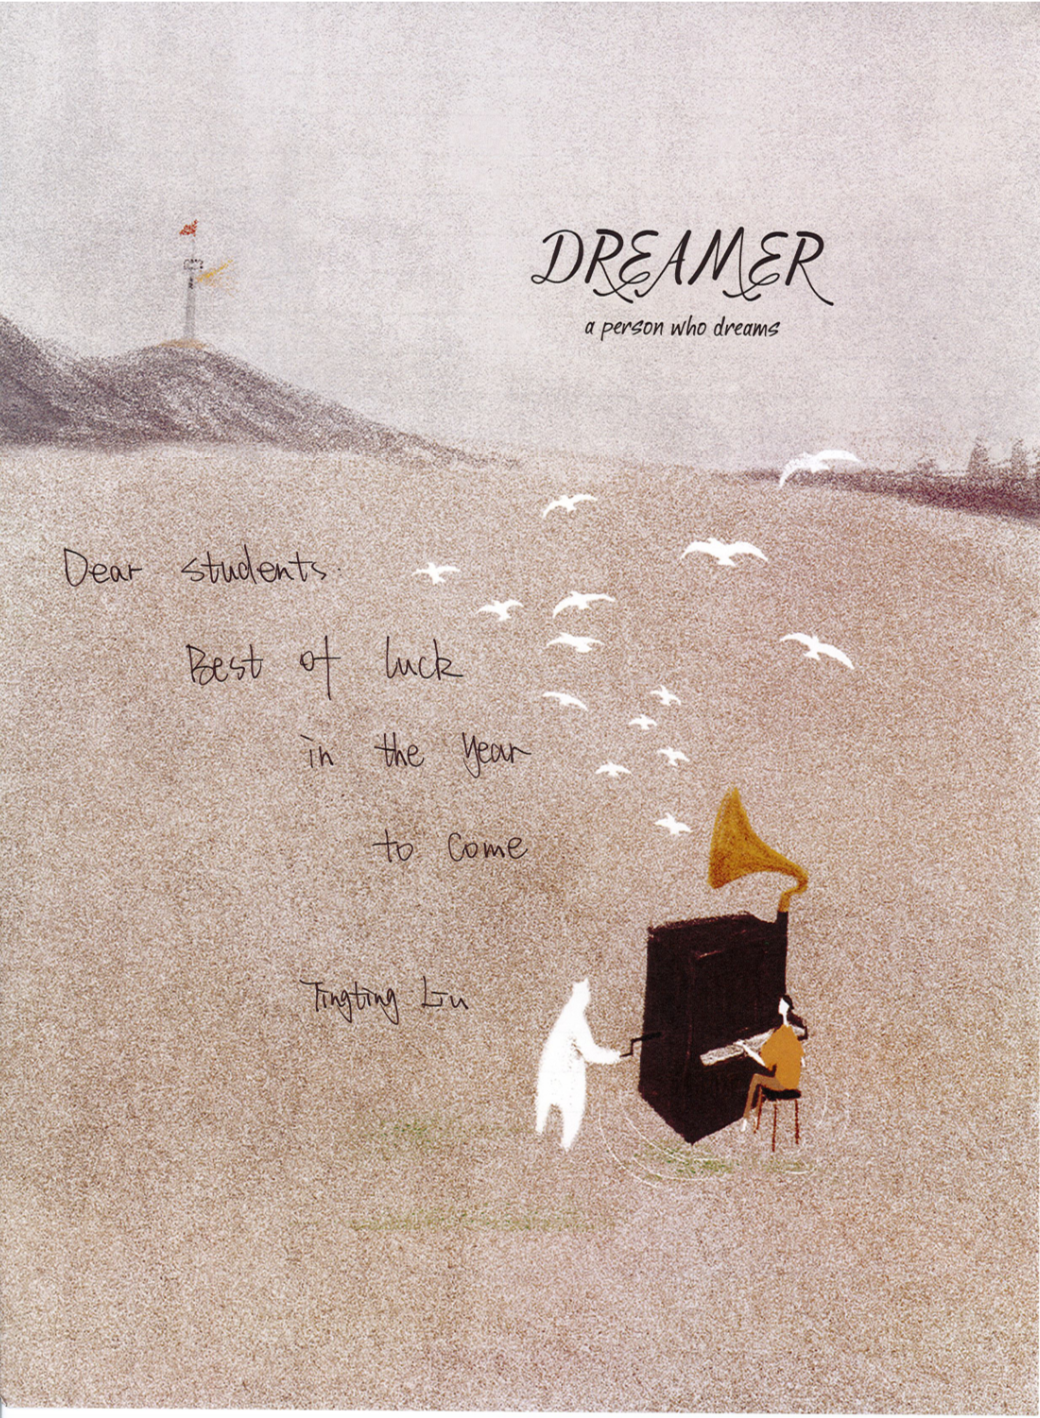 DREAMER
a person who dreams
Dear students.
Best of luck
in the year
to come
Tingting Liu